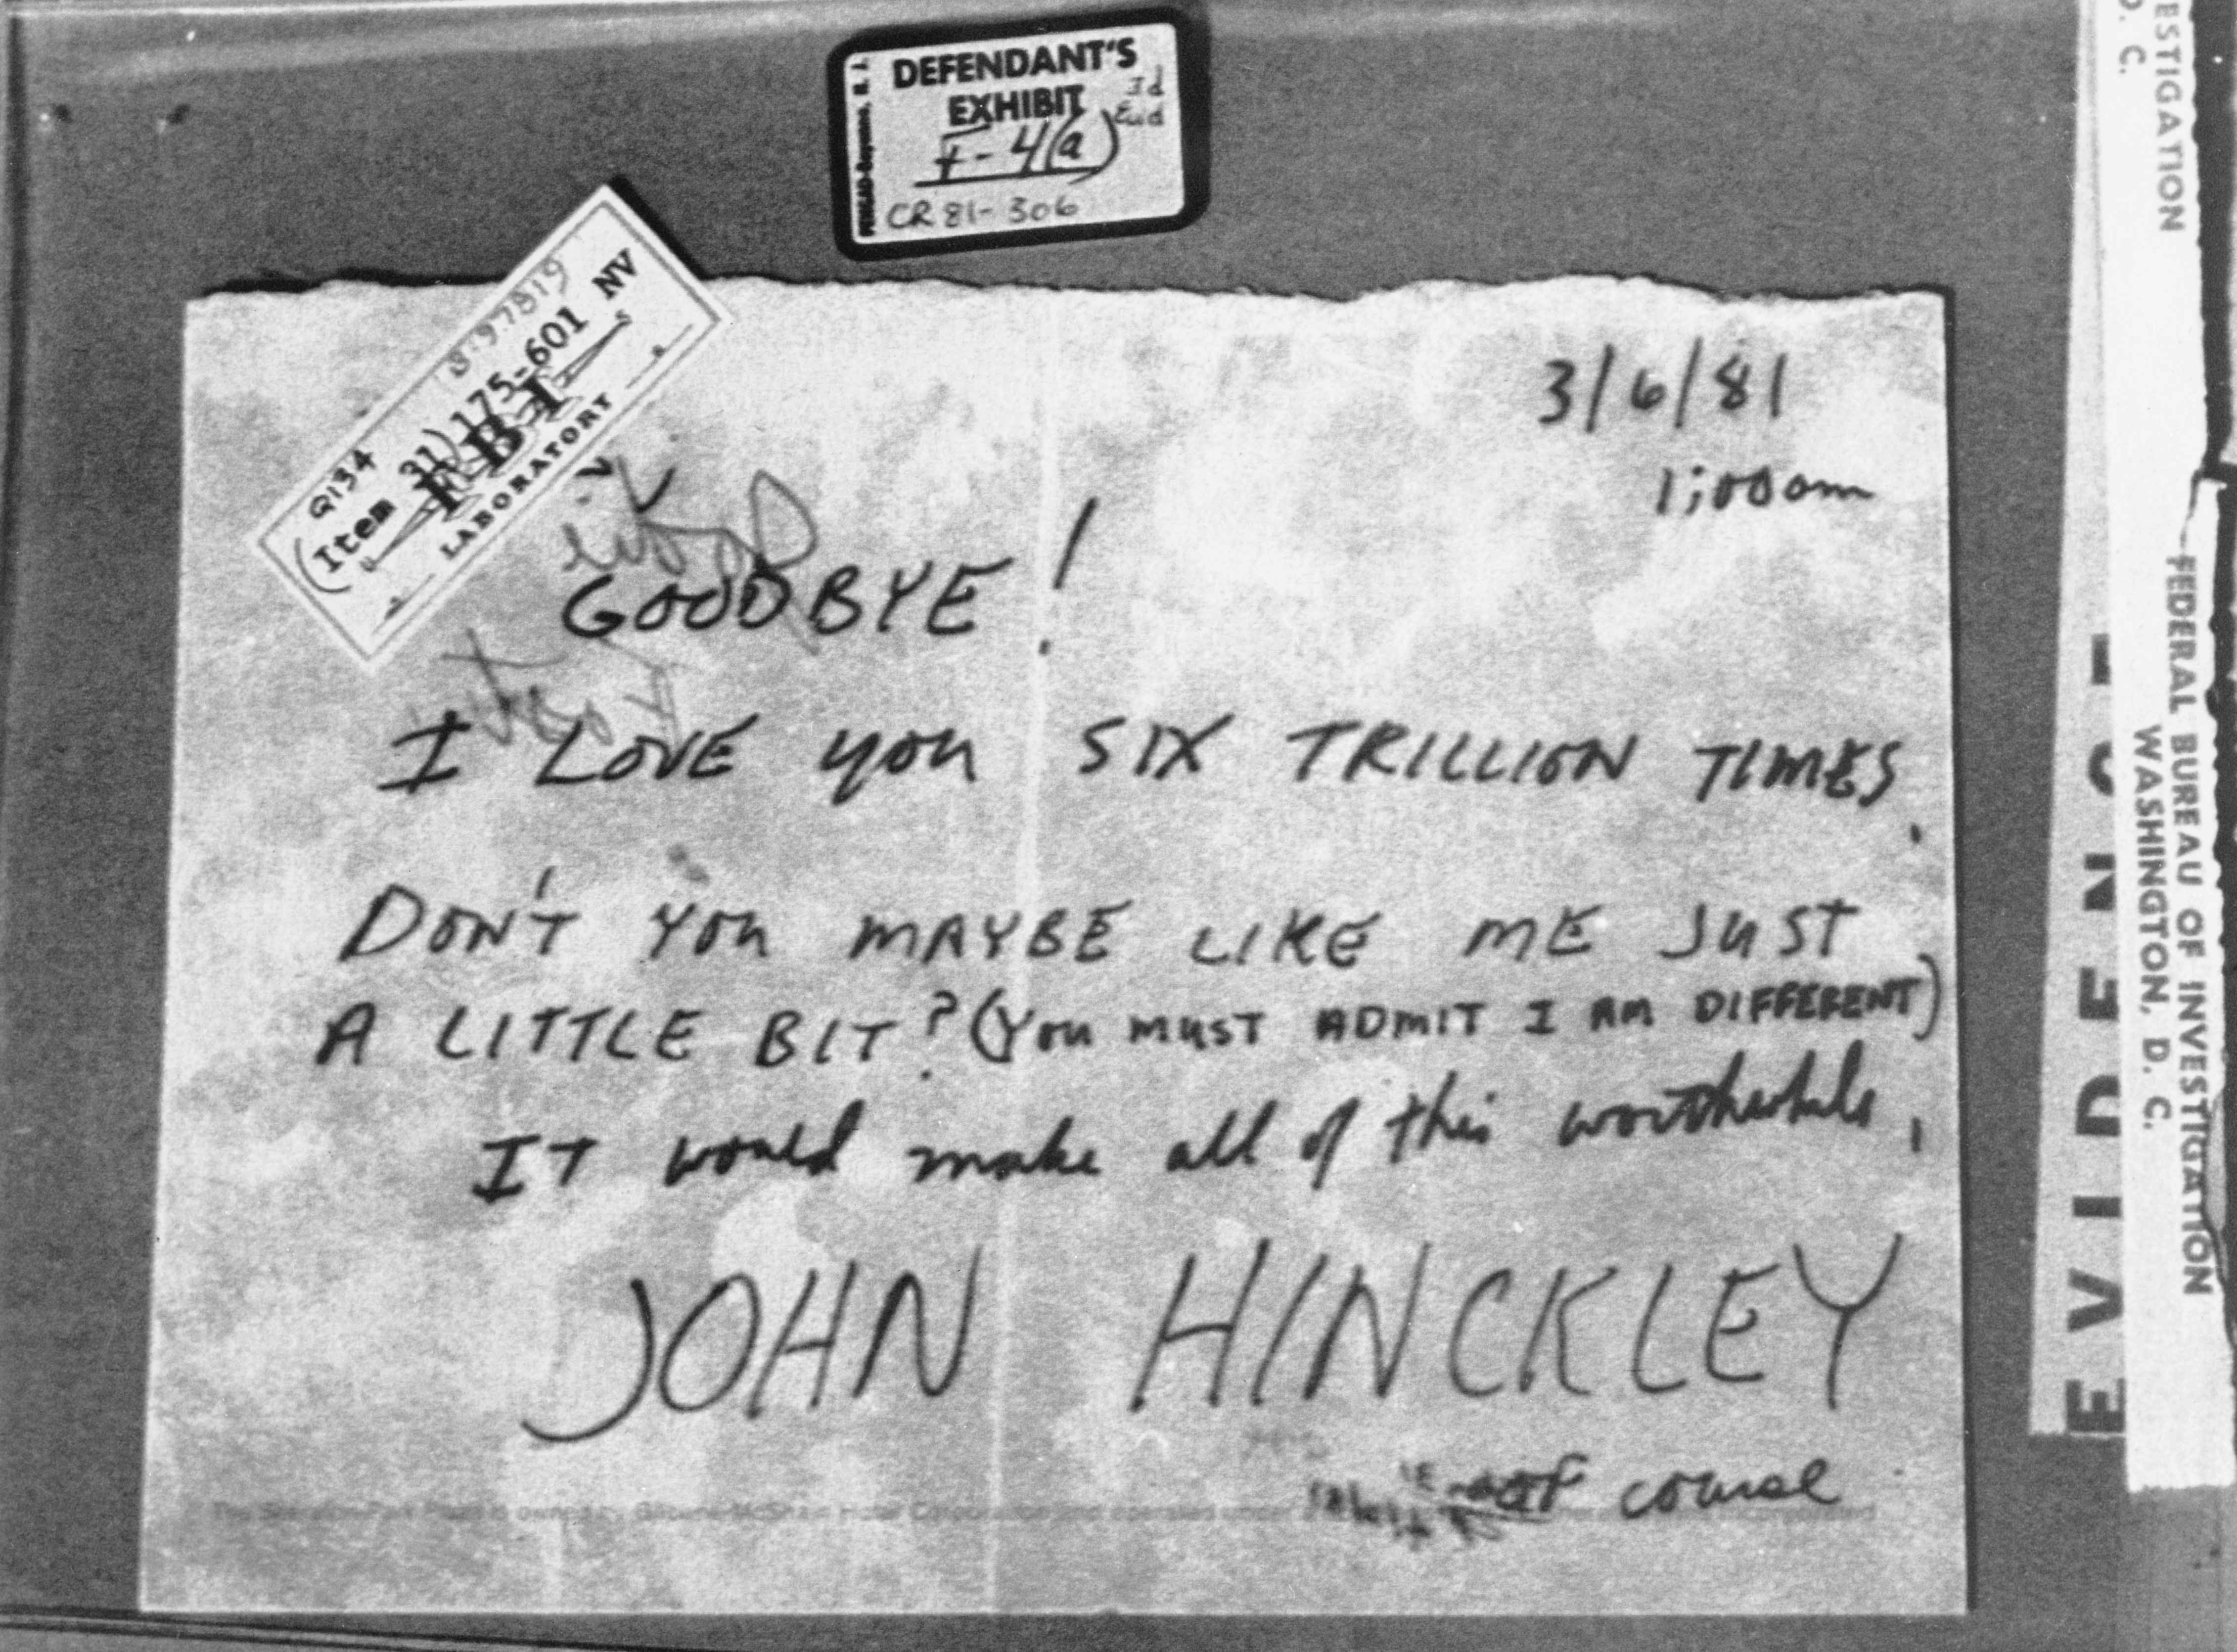 DEFENDANT'S
EXHIBIT 3d
F-4(a) Evid
CR 81-306
ESTIGATION
D. C.
8197819
Q134
(Item 31) 175-601 NV
FBI
LABORATORY
3/6/81
1;00am
GOODBYE!
I LOVE you SIX TRILLION TIMES.
DON'T You MAYBE LIKE ME JUST
A LITTLE BIT? (You MUST ADMIT I AM DIFFERENT)
IT would make all of this worthwhile.
JOHN HINCKLEY
of course
FEDERAL BUREAU OF INVESTIGATION
WASHINGTON, D. C.
EVIDENCE